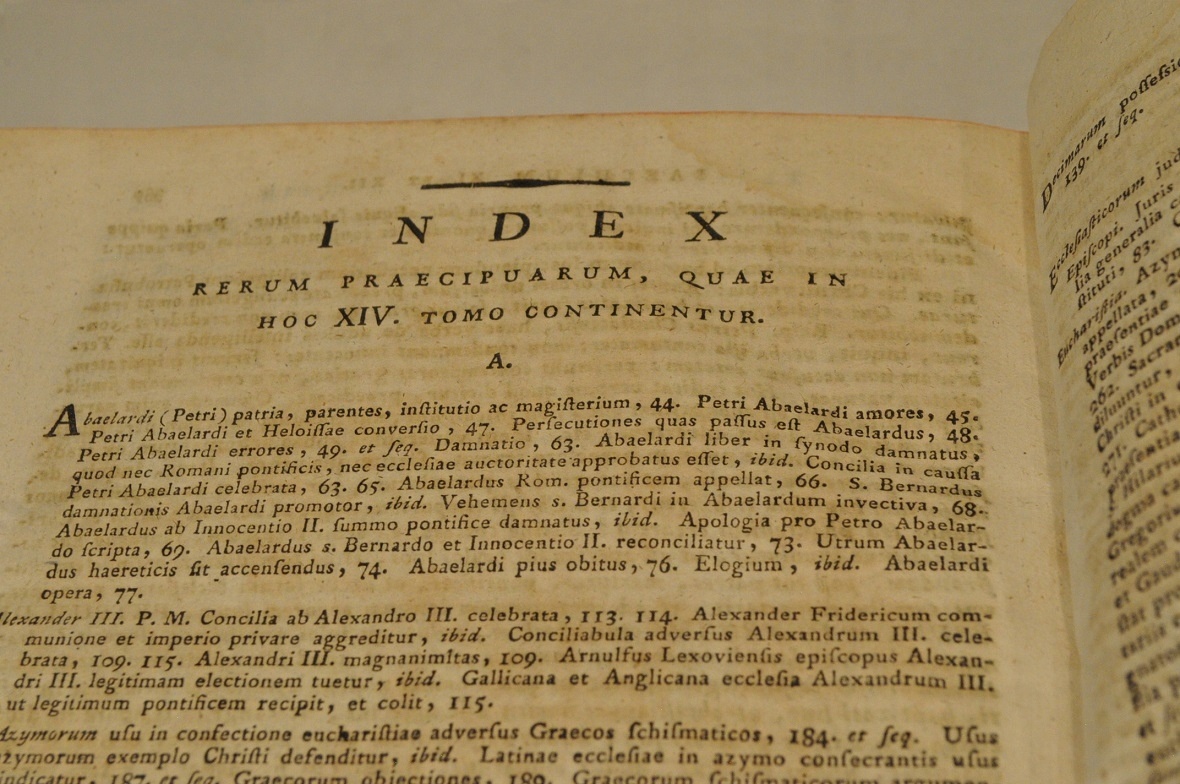 INDEX
RERUM PRAECIPUARUM, QUAE IN
HOC XIV. TOMO CONTINENTUR.
A.
Abaelardi (Petri) patria, parentes, inſtitutio ac magiſterium, 44. Petri Abaelardi amores, 45.
Petri Abaelardi et Heloiſſae converſio, 47. Perſecutiones quas paſſus eſt Abaelardus, 48.
Petri Abaelardi errores, 49. et ſeq. Damnatio, 63. Abaelardi liber in ſynodo damnatus,
quod nec Romani pontificis, nec eccleſiae auctoritate approbatus eſſet, ibid. Concilia in cauſſa
Petri Abaelardi celebrata, 63. 65. Abaelardus Rom. pontificem appellat, 66. S. Bernardus
damnationis Abaelardi promotor, ibid. Vehemens s. Bernardi in Abaelardum invectiva, 68.
Abaelardus ab Innocentio II. ſummo pontifice damnatus, ibid. Apologia pro Petro Abaelar-
do ſcripta, 69. Abaelardus s. Bernardo et Innocentio II. reconciliatur, 73. Utrum Abaelar-
dus haereticis ſit accenſendus, 74. Abaelardi pius obitus, 76. Elogium, ibid. Abaelardi
opera, 77.
lexander III. P. M. Concilia ab Alexandro III. celebrata, 113. 114. Alexander Fridericum com-
munione et imperio privare aggreditur, ibid. Conciliabula adverſus Alexandrum III. cele-
brata, 109. 115. Alexandri III. magnanimitas, 109. Arnulfus Lexovienſis epiſcopus Alexan-
dri III. legitimam electionem tuetur, ibid. Gallicana et Anglicana eccleſia Alexandrum III.
ut legitimum pontificem recipit, et colit, 115.
Azymorum uſu in confectione euchariſtiae adverſus Graecos ſchiſmaticos, 184. et ſeq. Uſus
azymorum exemplo Chriſti defenditur, ibid. Latinae eccleſiae in azymo conſecrantis uſus
indicatur, 187. et ſeq. Graecorum obiectiones, 189. Graecorum ſchiſmaticorum
Decimarum poſſeſſi
139. et ſeq.
Eccleſiaſticorum jud
Epiſcopi. Juris
lia generalia c
ſtituti, 83.
Euchariſtia. Azym
appellata,
praeſentiae
Verbis Dom
262. Sacra
diluuntur,
Chriſti in
271. Cath
praeſentia
Hilarius
dogma ca
Gregorio
realem
et Gaud